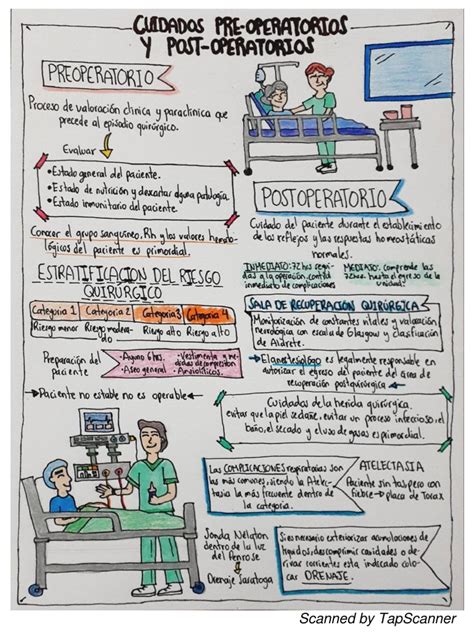 CUIDADOS PRE-OPERATORIOS
Y POST-OPERATORIOS
PREOPERATORIO
Proceso de valoración clínica y paraclínica que
precede al episodio quirúrgico.
Evaluar
•Estado general del paciente.
•Estado de nutrición y descartar alguna patología.
•Estado inmunitario del paciente.
Conocer el grupo sanguíneo, Rh y los valores hemato-
lógicos del paciente es primordial.
ESTRATIFICACION DEL RIESGO
QUIRÚRGICO
Categoría 1 Categoría 2 Categoría 3 Categoría 4
Riesgo menor Riesgo modera-
do Riesgo alto Riesgo alto
Preparación del
paciente
•Ayuno 6hrs.
•Aseo general
•Vestimenta y me-
didas de compresión
•Ansiolíticos
Paciente no estable no es operable
POSTOPERATORIO
Cuidado del paciente durante el establecimiento
de los reflejos y las respuestas homeostáticas
normales.
INMEDIATO: 72hrs segui-
das a la operación, control
inmediato de complicaciones
MEDIATO: comprende las
72hrs. hasta el egreso de la
unidad
SALA DE RECUPERACIÓN QUIRÚRGICA
Monitorización de constantes vitales y valoración
neurológica con escala de Glasgow y clasificación
de Aldrete.
El anestesiólogo es legalmente responsable en
autorizar el egreso del paciente del área de
recuperación postquirúrgica
Cuidados de la herida quirúrgica.
evitar que la piel se dañe, evitar un proceso infeccioso, el
baño, el secado y el uso de gasas es primordial.
Las COMPLICACIONES respiratorias son
las más comunes, siendo la Atelec-
tasia la más frecuente dentro de
la categoría.
ATELECTASIA
Paciente sin tos pero con
fiebre → placa de Torax
Sonda Nélaton
dentro de la luz
del Penrose
Drenaje Saratoga
Si es necesario exteriorizar acumulaciones de
líquidos, descomprimir cavidades o de-
rivar corrientes esta indicado colo-
car DRENAJE.
Scanned by TapScanner